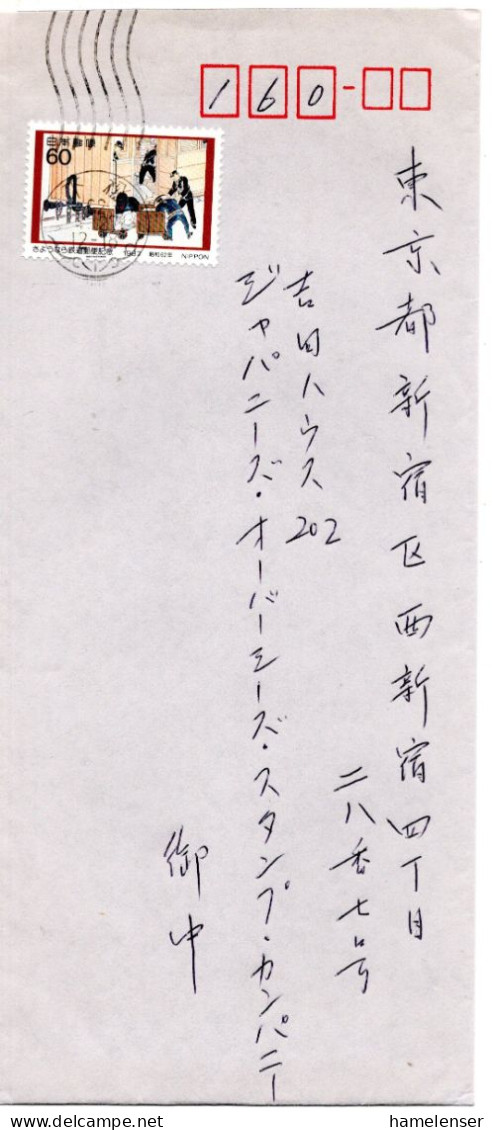 160
日本郵便
60
さようなら鉄道郵便記念 1987 昭和62年 NIPPON
東京都新宿区西新宿四丁目
二八番七号
吉田ハウス202
ジャパニーズ・オーバーシーズ・スタンプ・カンパニー
御中
www.delcampe.net
hamelenser